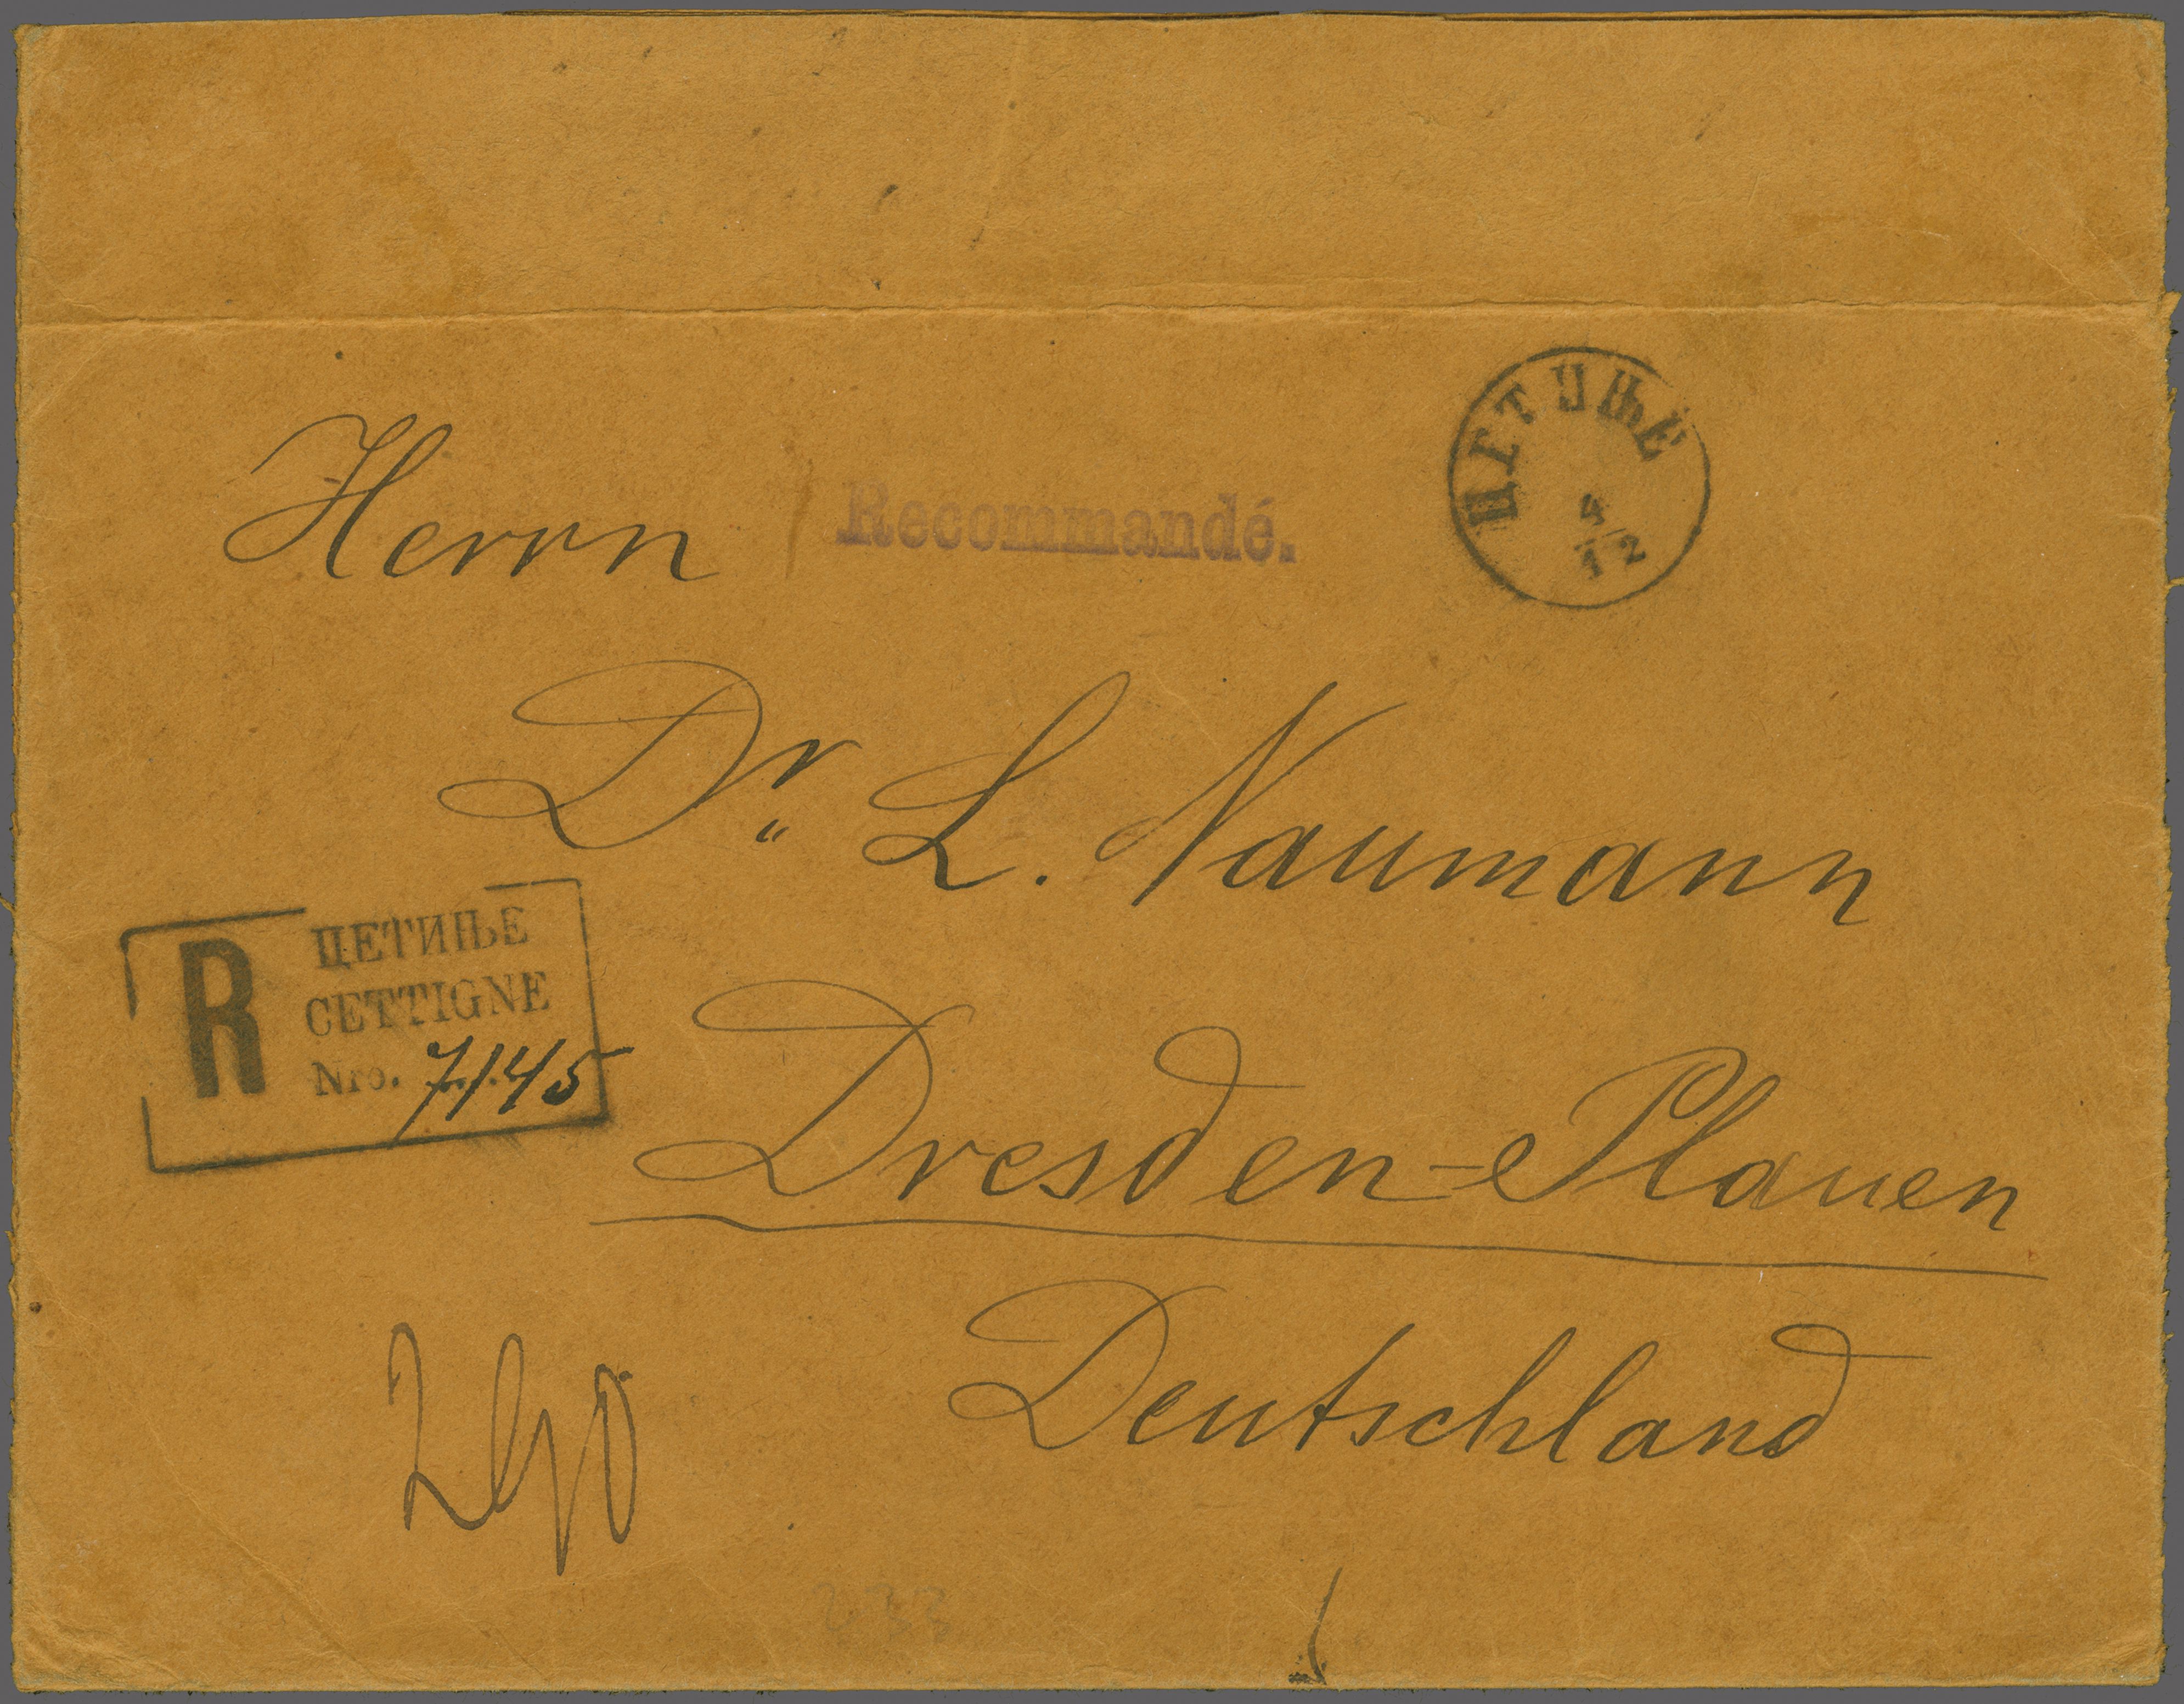 ЦЕТИЊЕ
4
12
Herrn
Recommandé.
Dr. L. Naumann
R
ЦЕТИЊЕ
CETTIGNE
Nro. 7145
Dresden-Plauen
Deutschland
233